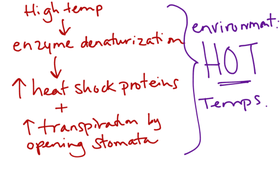 High temp
enzyme denaturization
↑ heat shock proteins
+
↑ transpiration by
opening stomata
environmat:
HOT
Temps.